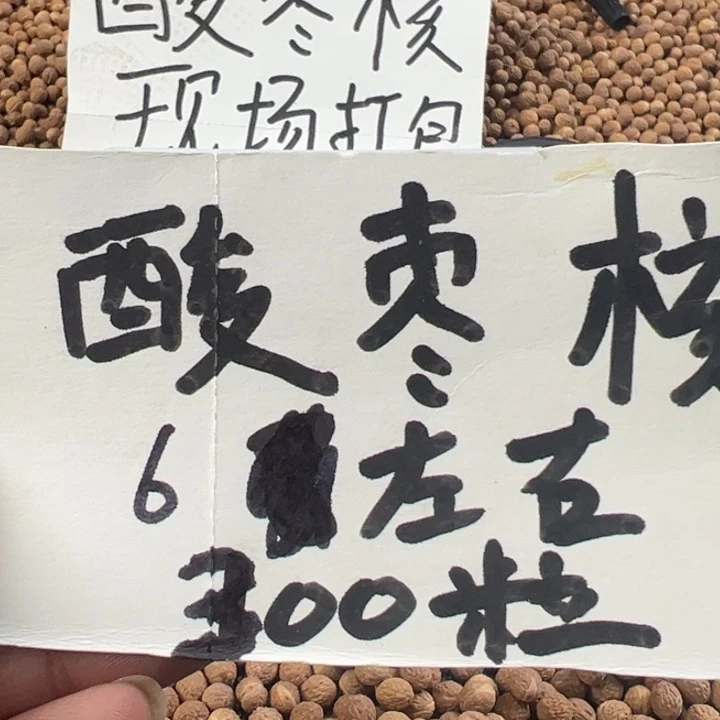 酸枣核
现场打包
酸枣核
6 左右
300粒